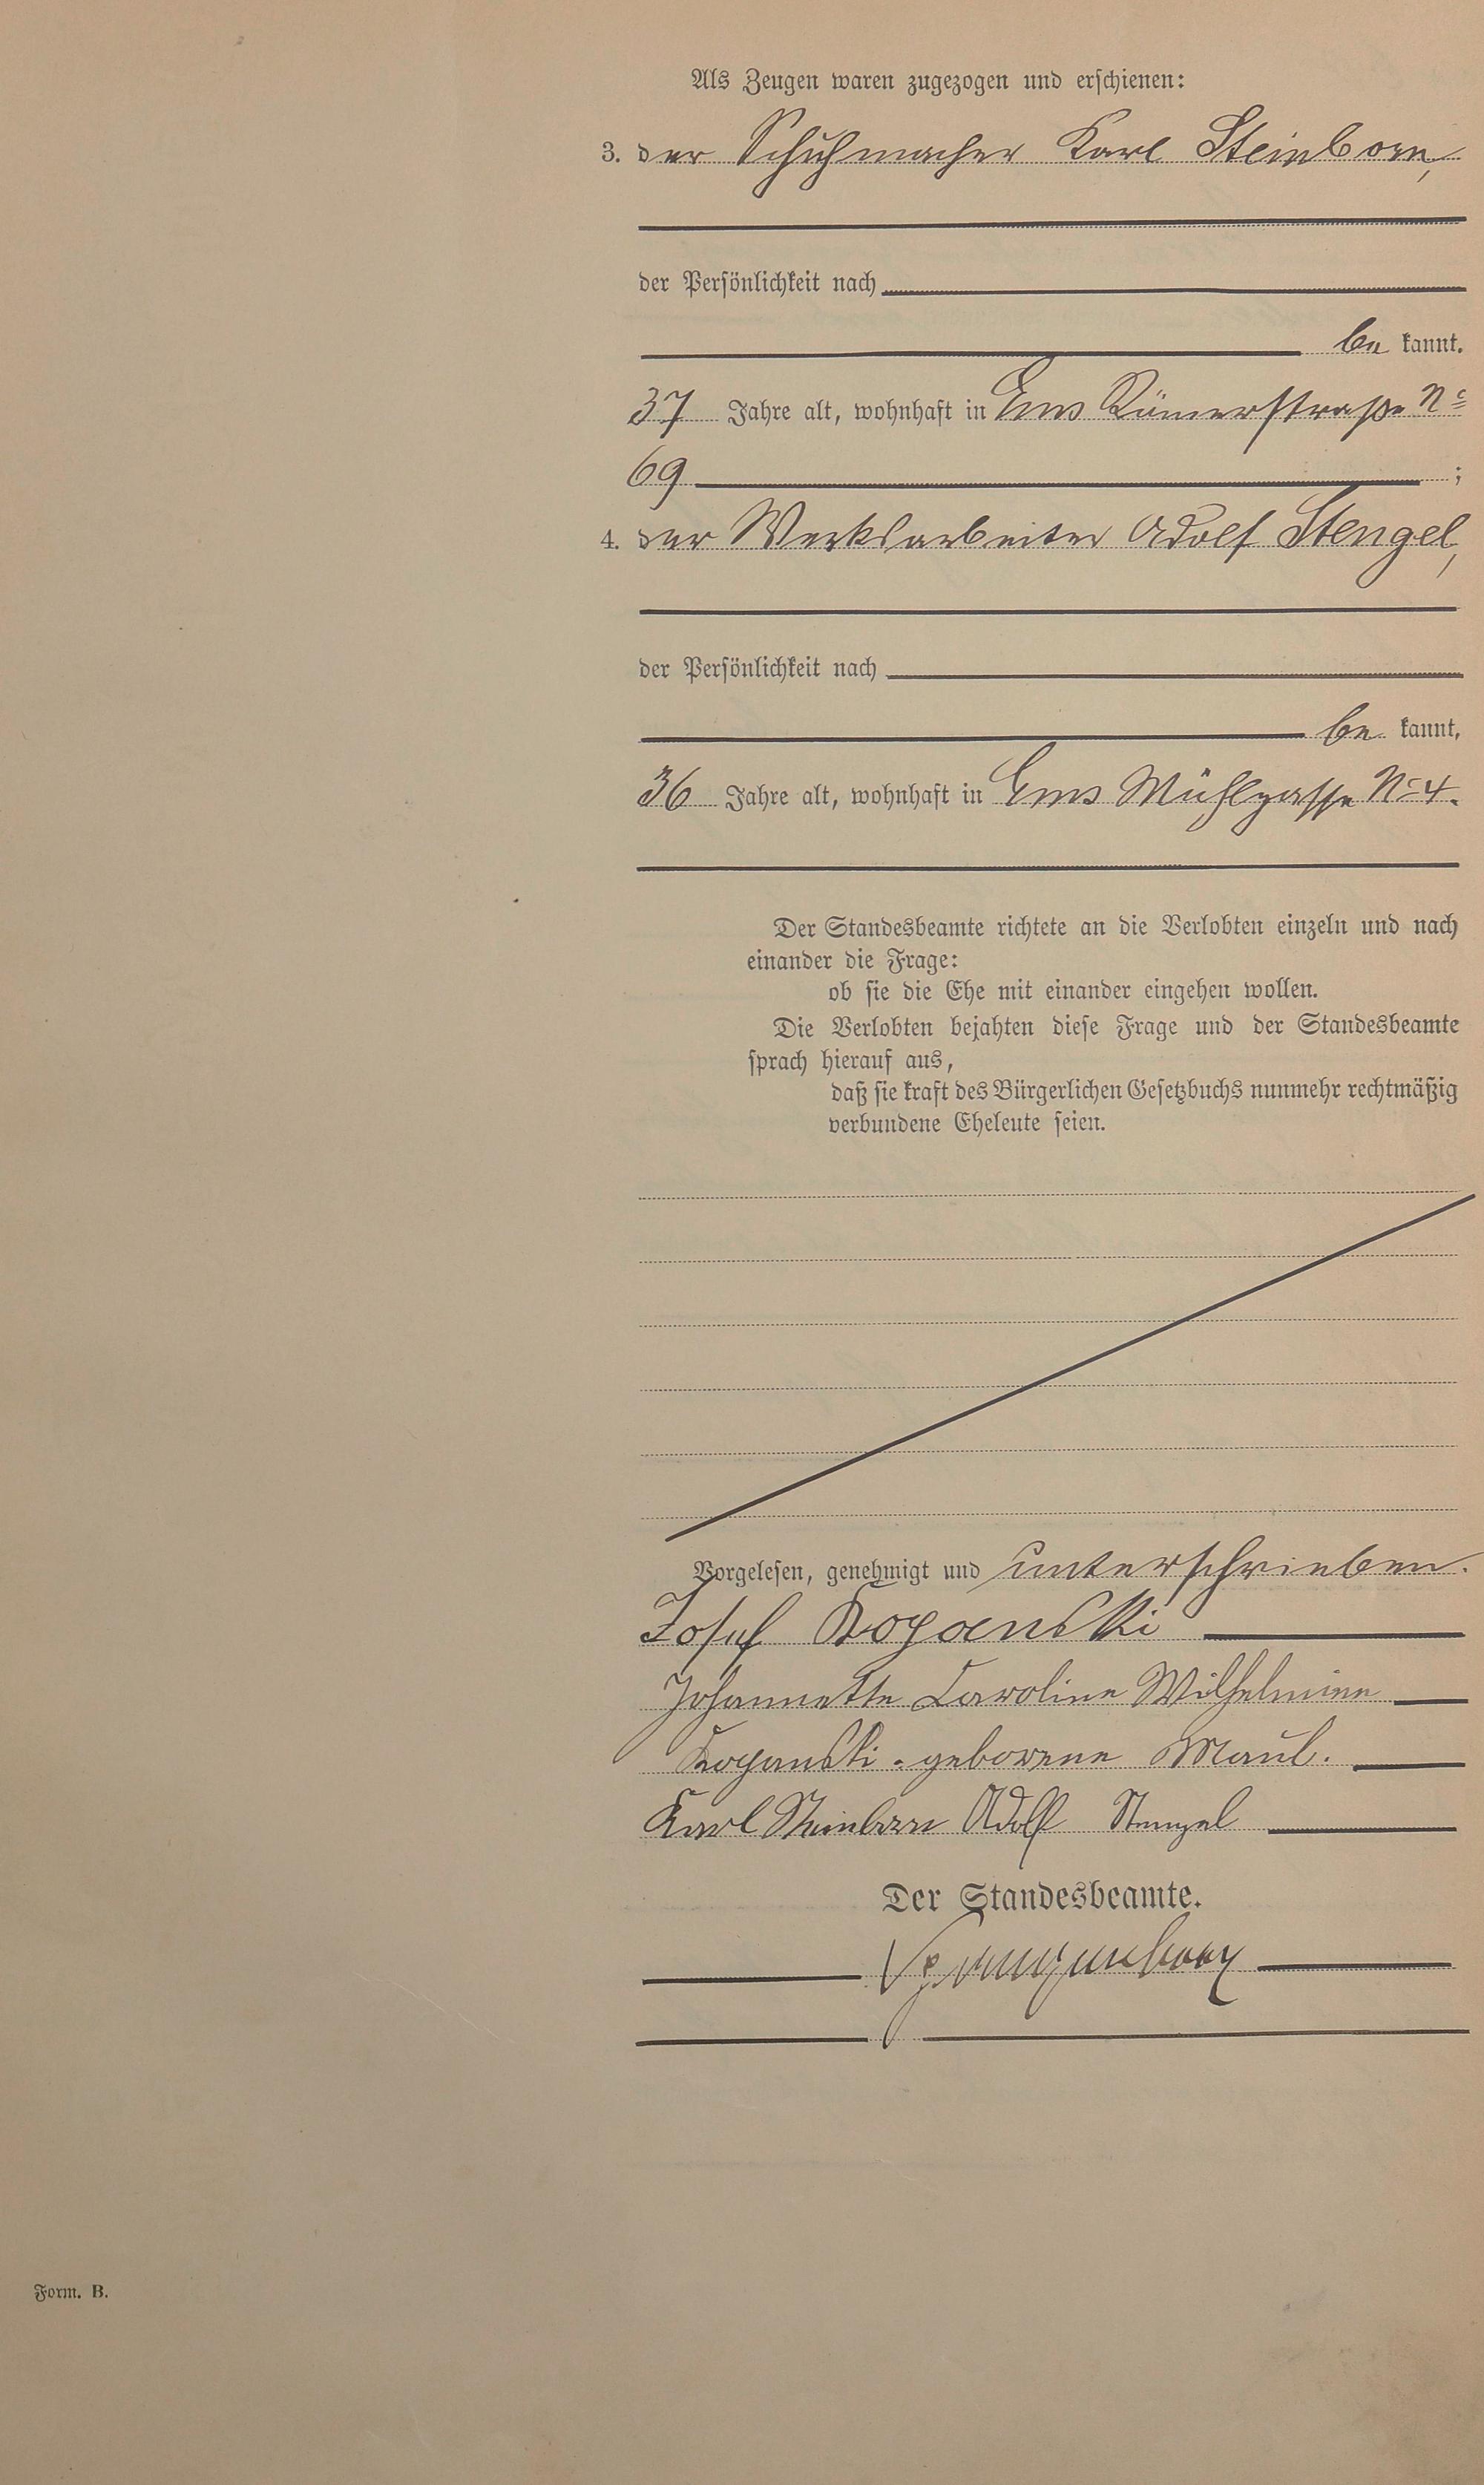 Als Zeugen waren zugezogen und erschienen:
3. der Schuhmacher Karl Steinborn,
der Persönlichkeit nach
be kannt.
37 Jahre alt, wohnhaft in Ems Römerstraße No
69 ;
4. der Werksarbeiter Adolf Stengel,
der Persönlichkeit nach
be kannt,
36 Jahre alt, wohnhaft in Ems Mühlgasse No 4.
Der Standesbeamte richtete an die Verlobten einzeln und nach
einander die Frage:
ob sie die Ehe mit einander eingehen wollen.
Die Verlobten bejahten diese Frage und der Standesbeamte
sprach hierauf aus,
daß sie kraft des Bürgerlichen Gesetzbuchs nunmehr rechtmäßig
verbundene Eheleute seien.
Vorgelesen, genehmigt und unterschrieben.
Josef Roganski
Johannette Caroline Wilhelmine
Roganski geborene Maul.
Karl Steinborn Adolf Stengel
Der Standesbeamte.
Form. B.